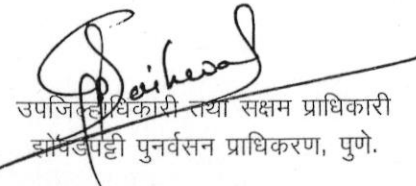 उपजिल्हाधिकारी तथा सक्षम प्राधिकारी
झोंपडपट्टी पुनर्वसन प्राधिकरण, पुणे.